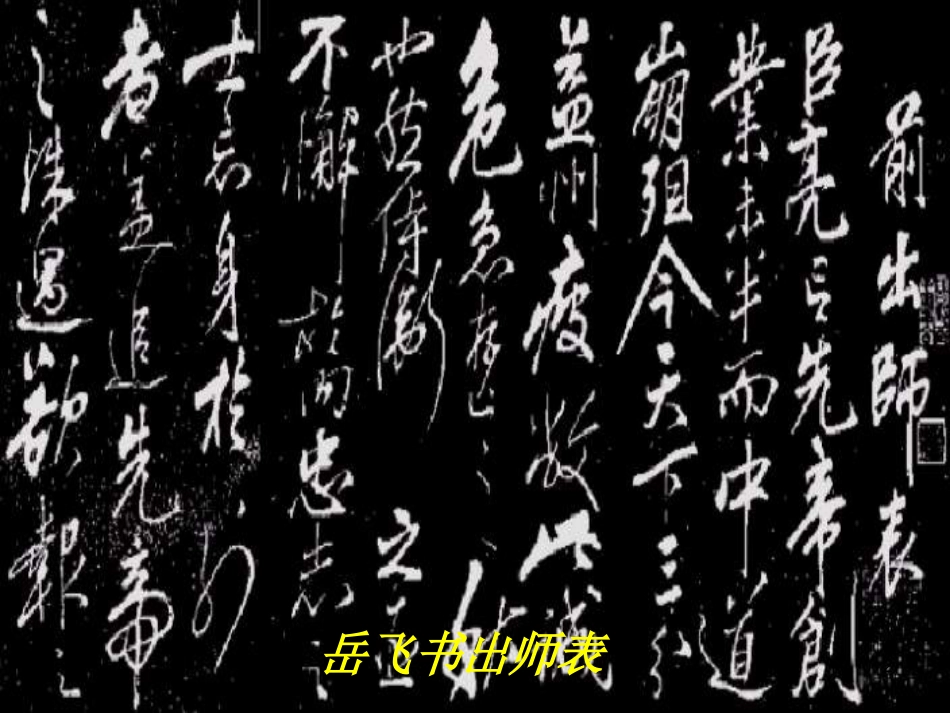 前出師表
臣亮言先帝創
業未半而中道
崩殂今天下三分
益州疲敝此誠
危急存亡之秋
也然侍衛之臣
不懈於內忠志之
士忘身於外
者蓋追先帝
之殊遇欲報之
岳飞书出师表